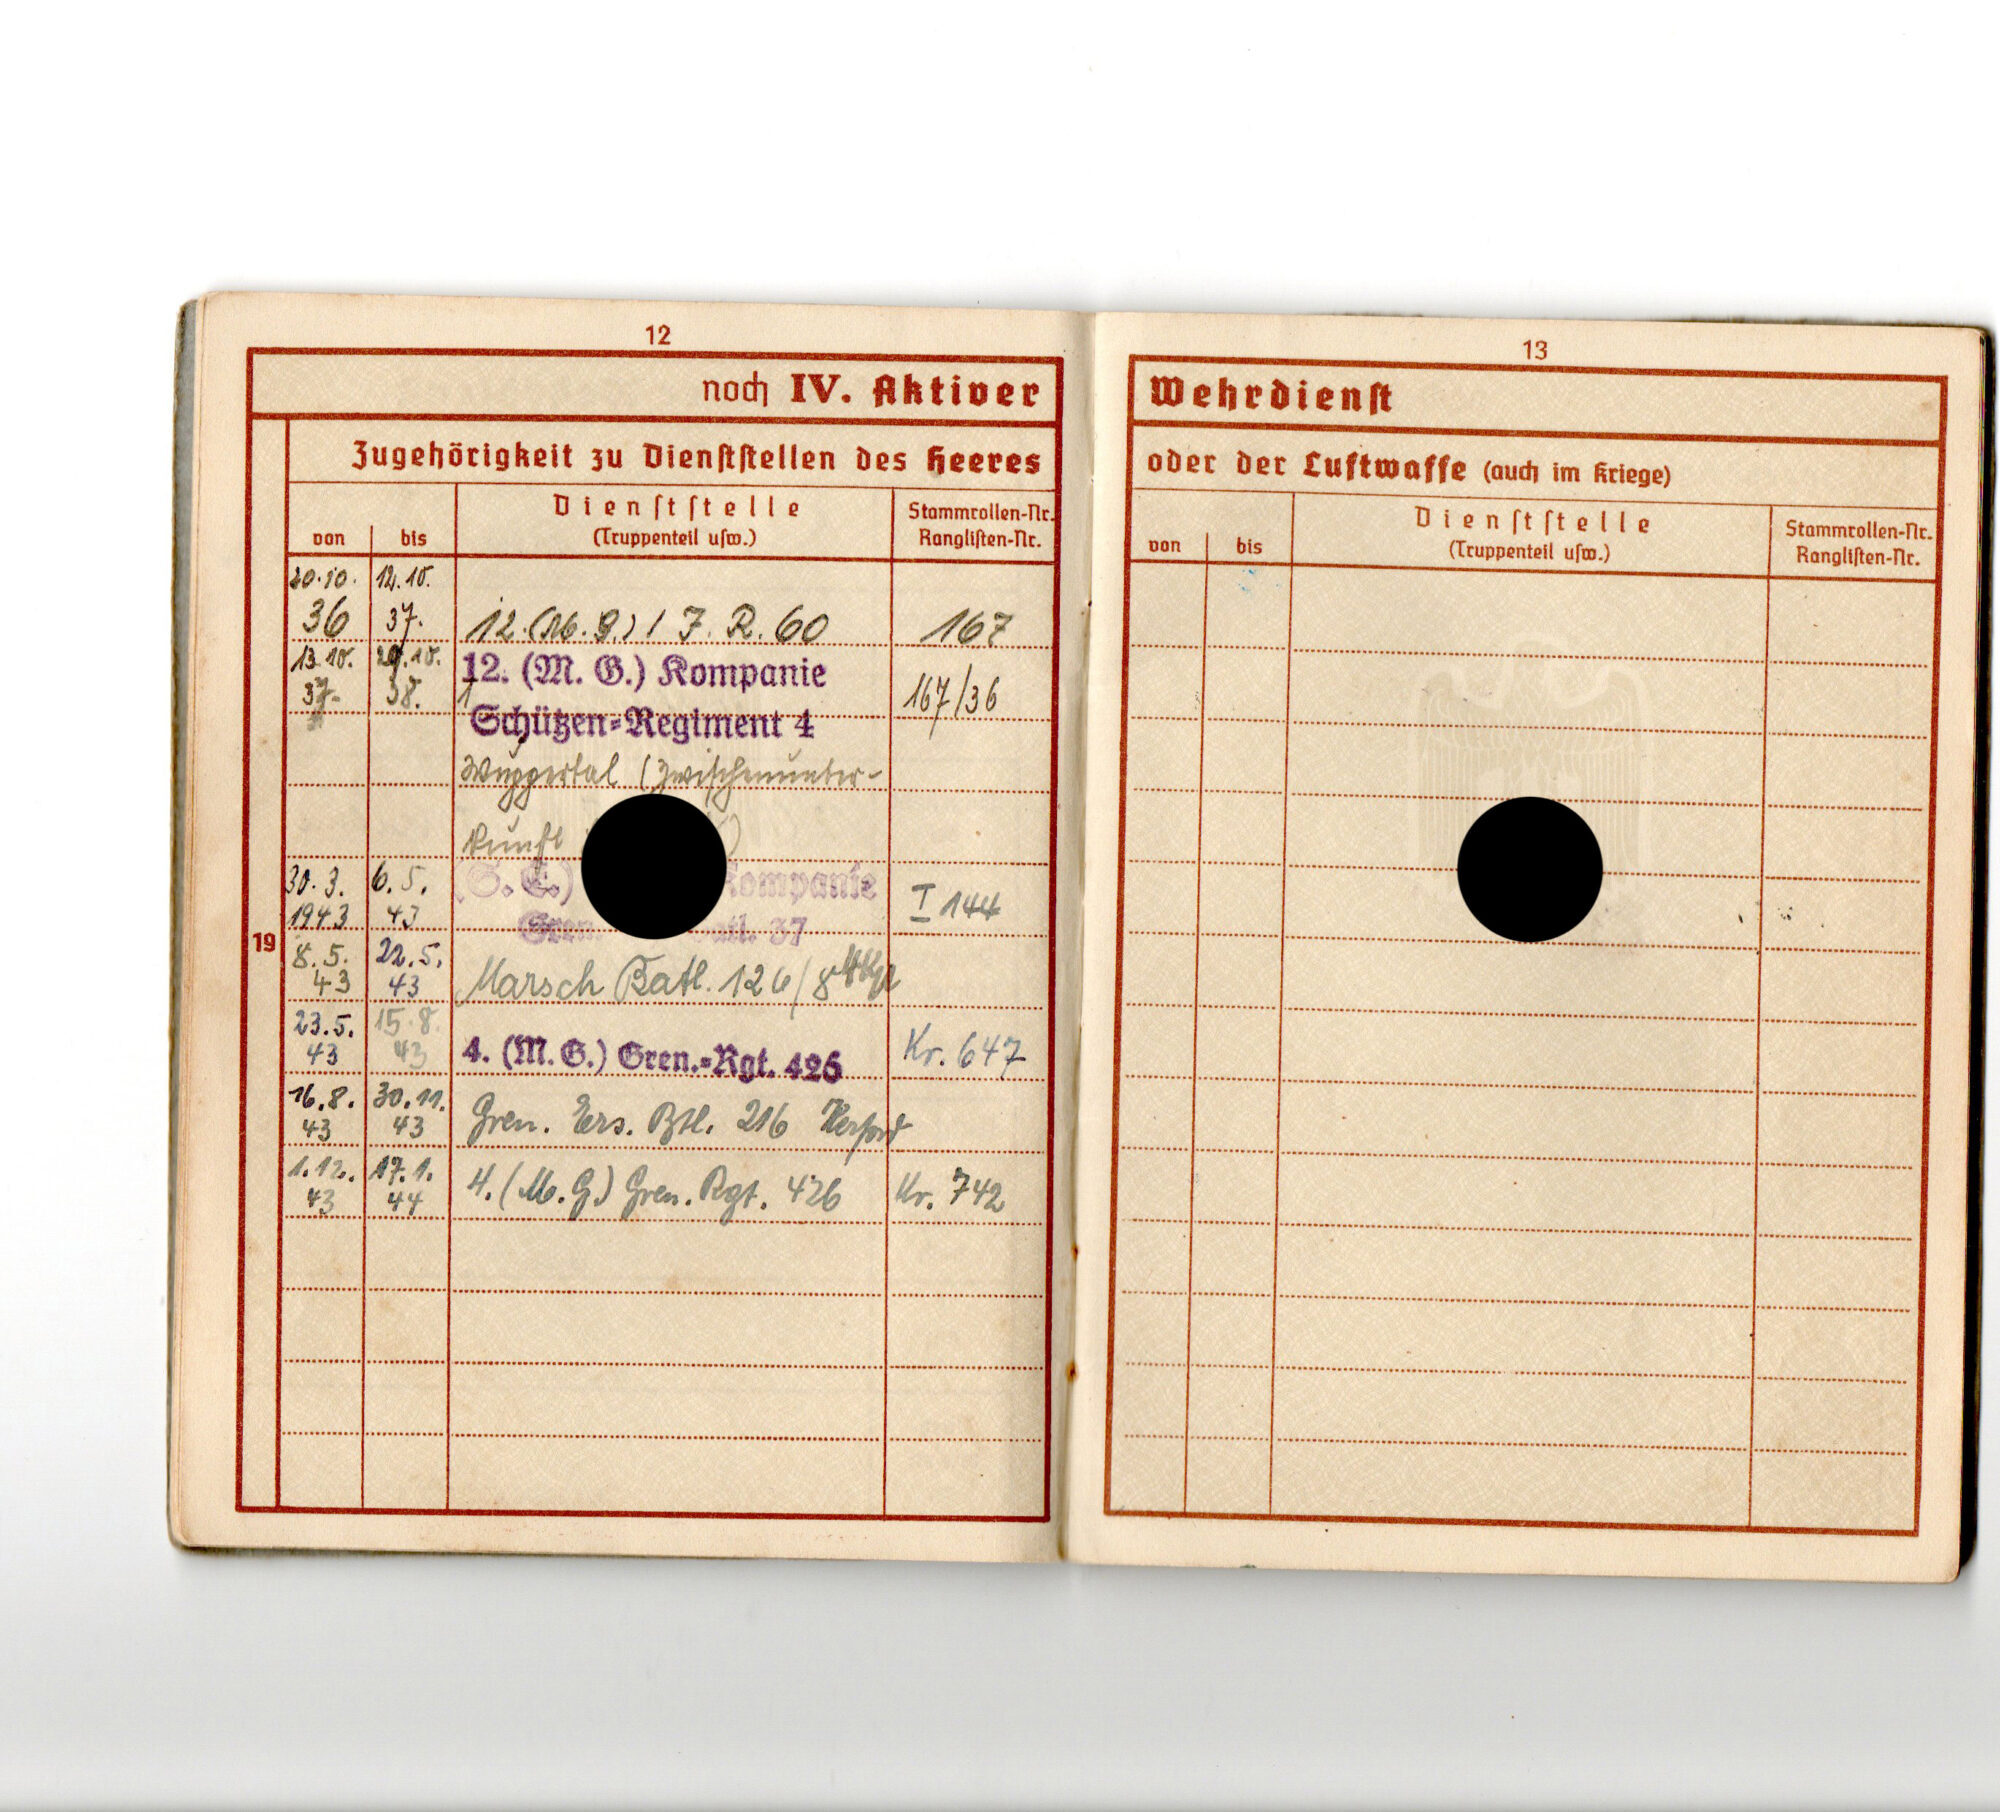 12
noch IV. Aktiver
Zugehörigkeit zu Dienststellen des Heeres
von bis Dienststelle (Truppenteil usw.) Stammrollen-Nr. Ranglisten-Nr.
20.10. 12.10.
36 37. 12.(M.G.) / J. R. 60 167
13.10. 10.
37. 38. 12. (M. G.) Kompanie 167/36
Schützen-Regiment 4
Wuppertal (Zwischenunter-
kunft
30.3. 6.5. Kompanie
1943 43 Gren. 37 I 144
19
8.5. 22.5.
43 43 Marsch Batl. 126/8
23.5. 15.8.
43 43 4. (M.G.) Gren.-Rgt. 426 Kr. 647
16.8. 30.11.
43 43 Gren. Ers. Btl. 216 Herford
1.12. 17.1.
43 44 4. (M.G) Gren. Rgt. 426 Kr. 742
13
Wehrdienst
oder der Luftwaffe (auch im Kriege)
von bis Dienststelle (Truppenteil usw.) Stammrollen-Nr. Ranglisten-Nr.